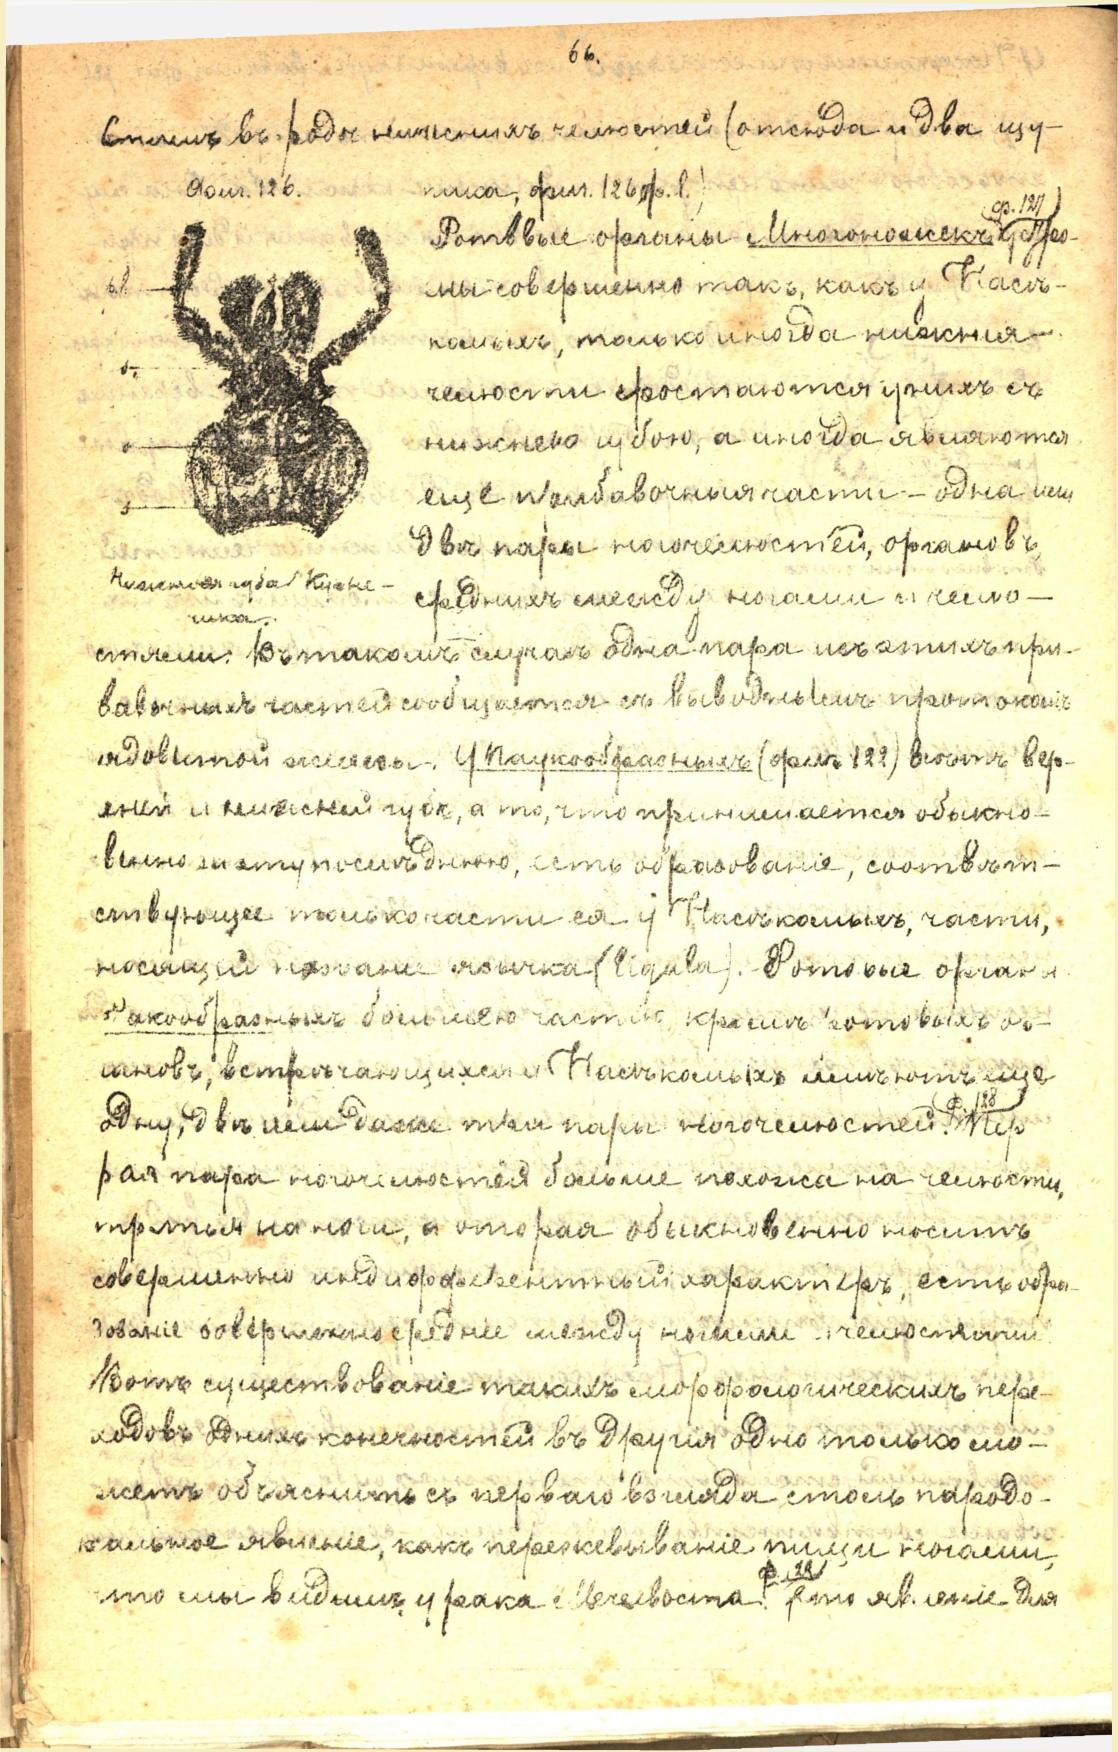 66.
въ родѣ нижнихъ челюстей (отсюда и два щу-
Фиг. 126.
пика, фиг. 126 р. l.)
Ротовые органы Многоножекъ ф. 127) устро-
ны совершенно такъ, какъ у Насѣ-
комыхъ, только иногда нижнія
челюсти сростаются у нихъ съ
нижнею губою, а иногда являются
еще прибавочныя части – одна или
двѣ пары ногочелюстей, органовъ,
среднихъ между ногами и челю-
Нижняя губа Кузне-
чика.
стями. Въ такомъ случаѣ одна пара изъ этихъ при-
бавочныхъ частей сообщается съ выводнымъ протокомъ
ядовитой железы. У Паукообразныхъ (фиг. 122) нѣтъ вер-
хней и нижней губы, а то, что принимается обыкно-
венно за эту послѣднюю, есть образованіе, соотвѣт-
ствующее только части ея у Насѣкомыхъ, части,
носящей названіе язычка (ligula). Ротовые органы
Ракообразныхъ большею частію, кромѣ ротовыхъ ор-
гановъ, встрѣчающихся у Насѣкомыхъ имѣютъ еще
одну, двѣ или даже три пары ногочелюстей. ф. 128
рая пара ногочелюстей больше похожа на челюсти,
третья на ноги, а вторая обыкновенно носитъ
совершенно индифферентный характеръ, есть обра-
зованіе совершенно среднее между ногами и челюстями.
Вотъ существованіе такихъ морфологическихъ пере-
ходовъ однихъ конечностей въ другія одно только мо-
жетъ объяснить съ перваго взгляда столь парадо-
кальное явленіе, какъ пережевываніе пищи ногами,
что мы видимъ у рака Мечехвоста. Это явленіе для